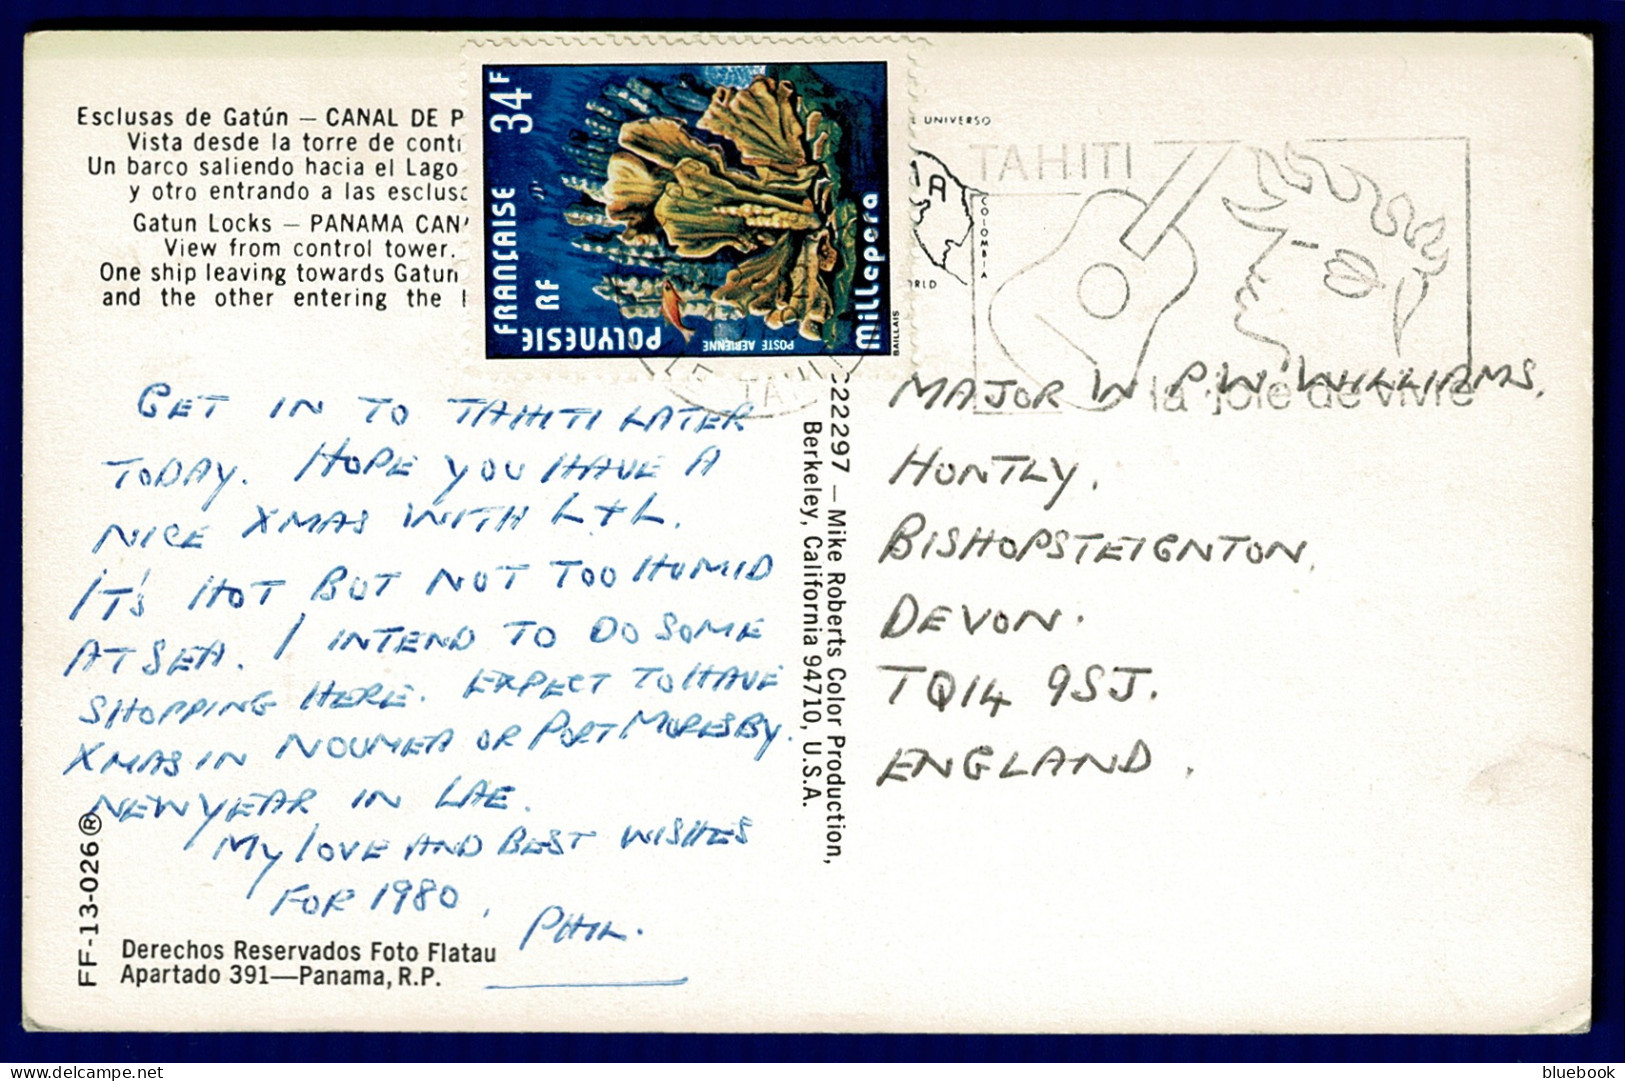 Esclusas de Gatún — CANAL DE P
Vista desde la torre de cont
Un barco saliendo hacia el Lago
y otro entrando a las esclus
Gatun Locks — PANAMA CAN
View from control tower.
One ship leaving towards Gatun
and the other entering the
34F
POLYNESIE FRANÇAISE
RF
POSTE AERIENNE
Millepora
BAILLAIS
UNIVERSO
COLOMBIA
ORLD
TAHITI
la joie de vivre
GET IN TO TAHITI LATER
TODAY. HOPE YOU HAVE A
NICE XMAS WITH L+L.
IT'S HOT BUT NOT TOO HUMID
AT SEA. I INTEND TO DO SOME
SHOPPING HERE. EXPECT TO HAVE
XMAS IN NOUMEA OR PORT MORESBY.
NEW YEAR IN LAE.
MY LOVE AND BEST WISHES
FOR 1980,
PHIL.
FF-13-026®
Derechos Reservados Foto Flatau
Apartado 391—Panama, R.P.
C22297 — Mike Roberts Color Production,
Berkeley, California 94710, U.S.A.
MAJOR W P.W. WILLIAMS.
HUNTLY,
BISHOPSTEIGNTON,
DEVON.
TQ14 9SJ.
ENGLAND,
bluebook